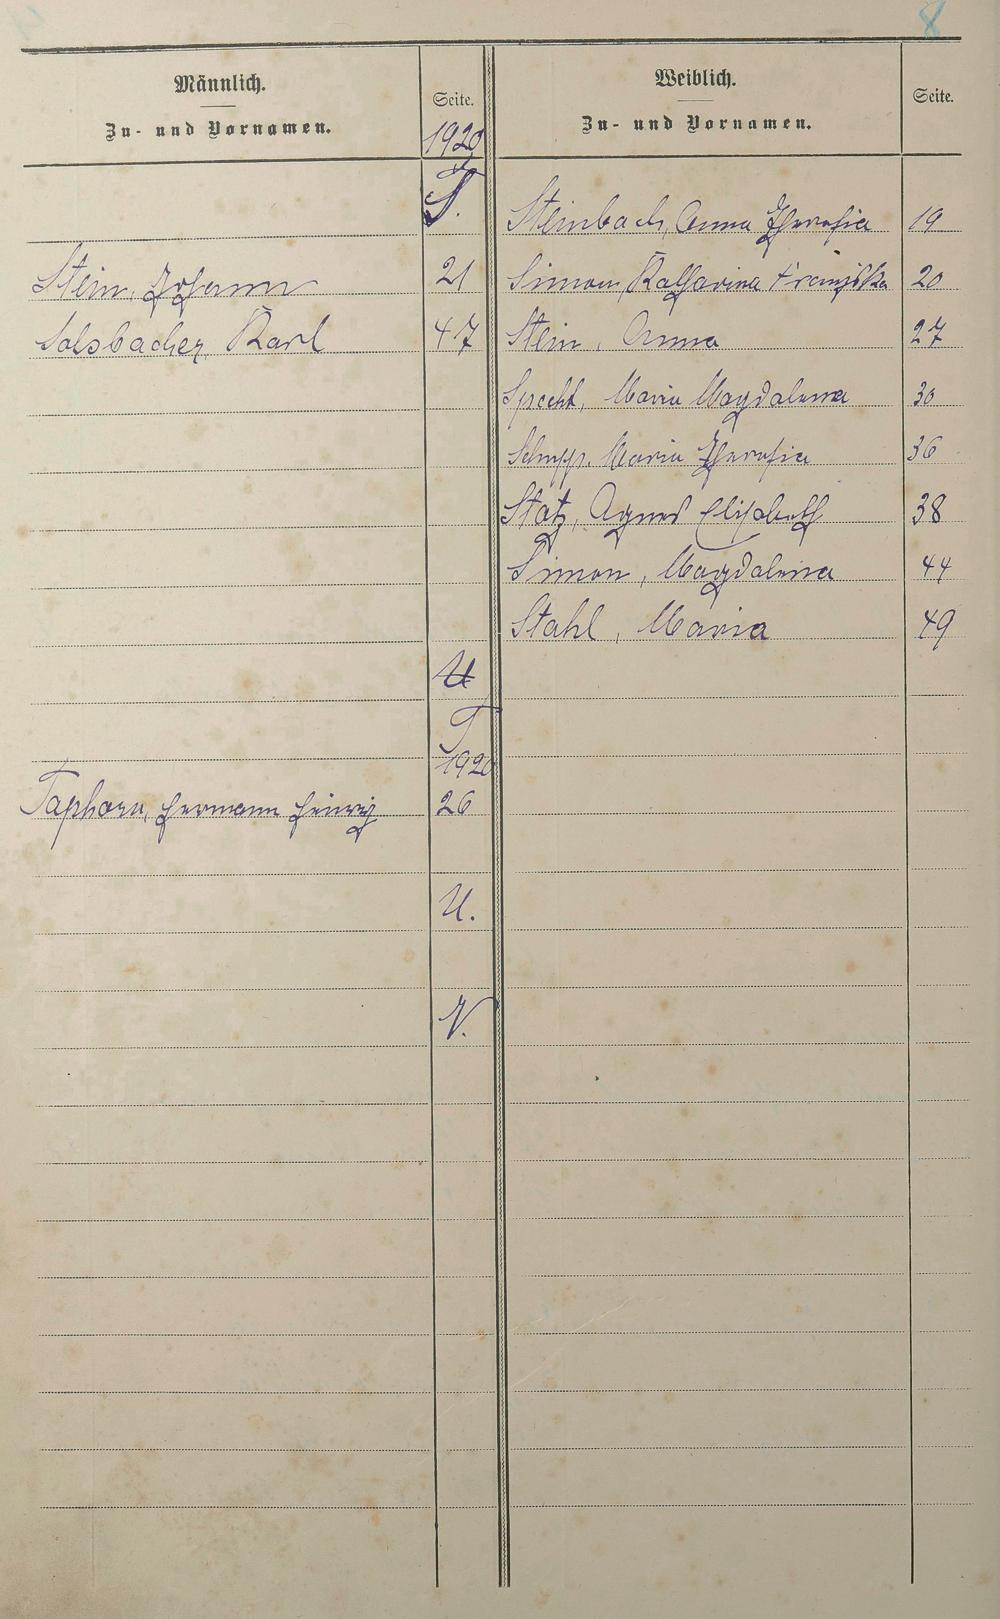 8
Männlich.
Zu- und Vornamen.
Seite.
Weiblich.
Zu- und Vornamen.
Seite.
1920
S.
Steinbach, Anna Theresia 19
Stein, Johann 21
Simon, Katharina Franziska 20
Salsbacher, Karl 47
Stein, Anna 27
Specht, Maria Magdalena 30
Schupp, Maria Theresia 36
Statz, Agnes Elisabeth 38
Simon, Magdalena 44
Stahl, Maria 49
U
T
1920
Taphorn, Hermann Heinrich 26
U.
V.